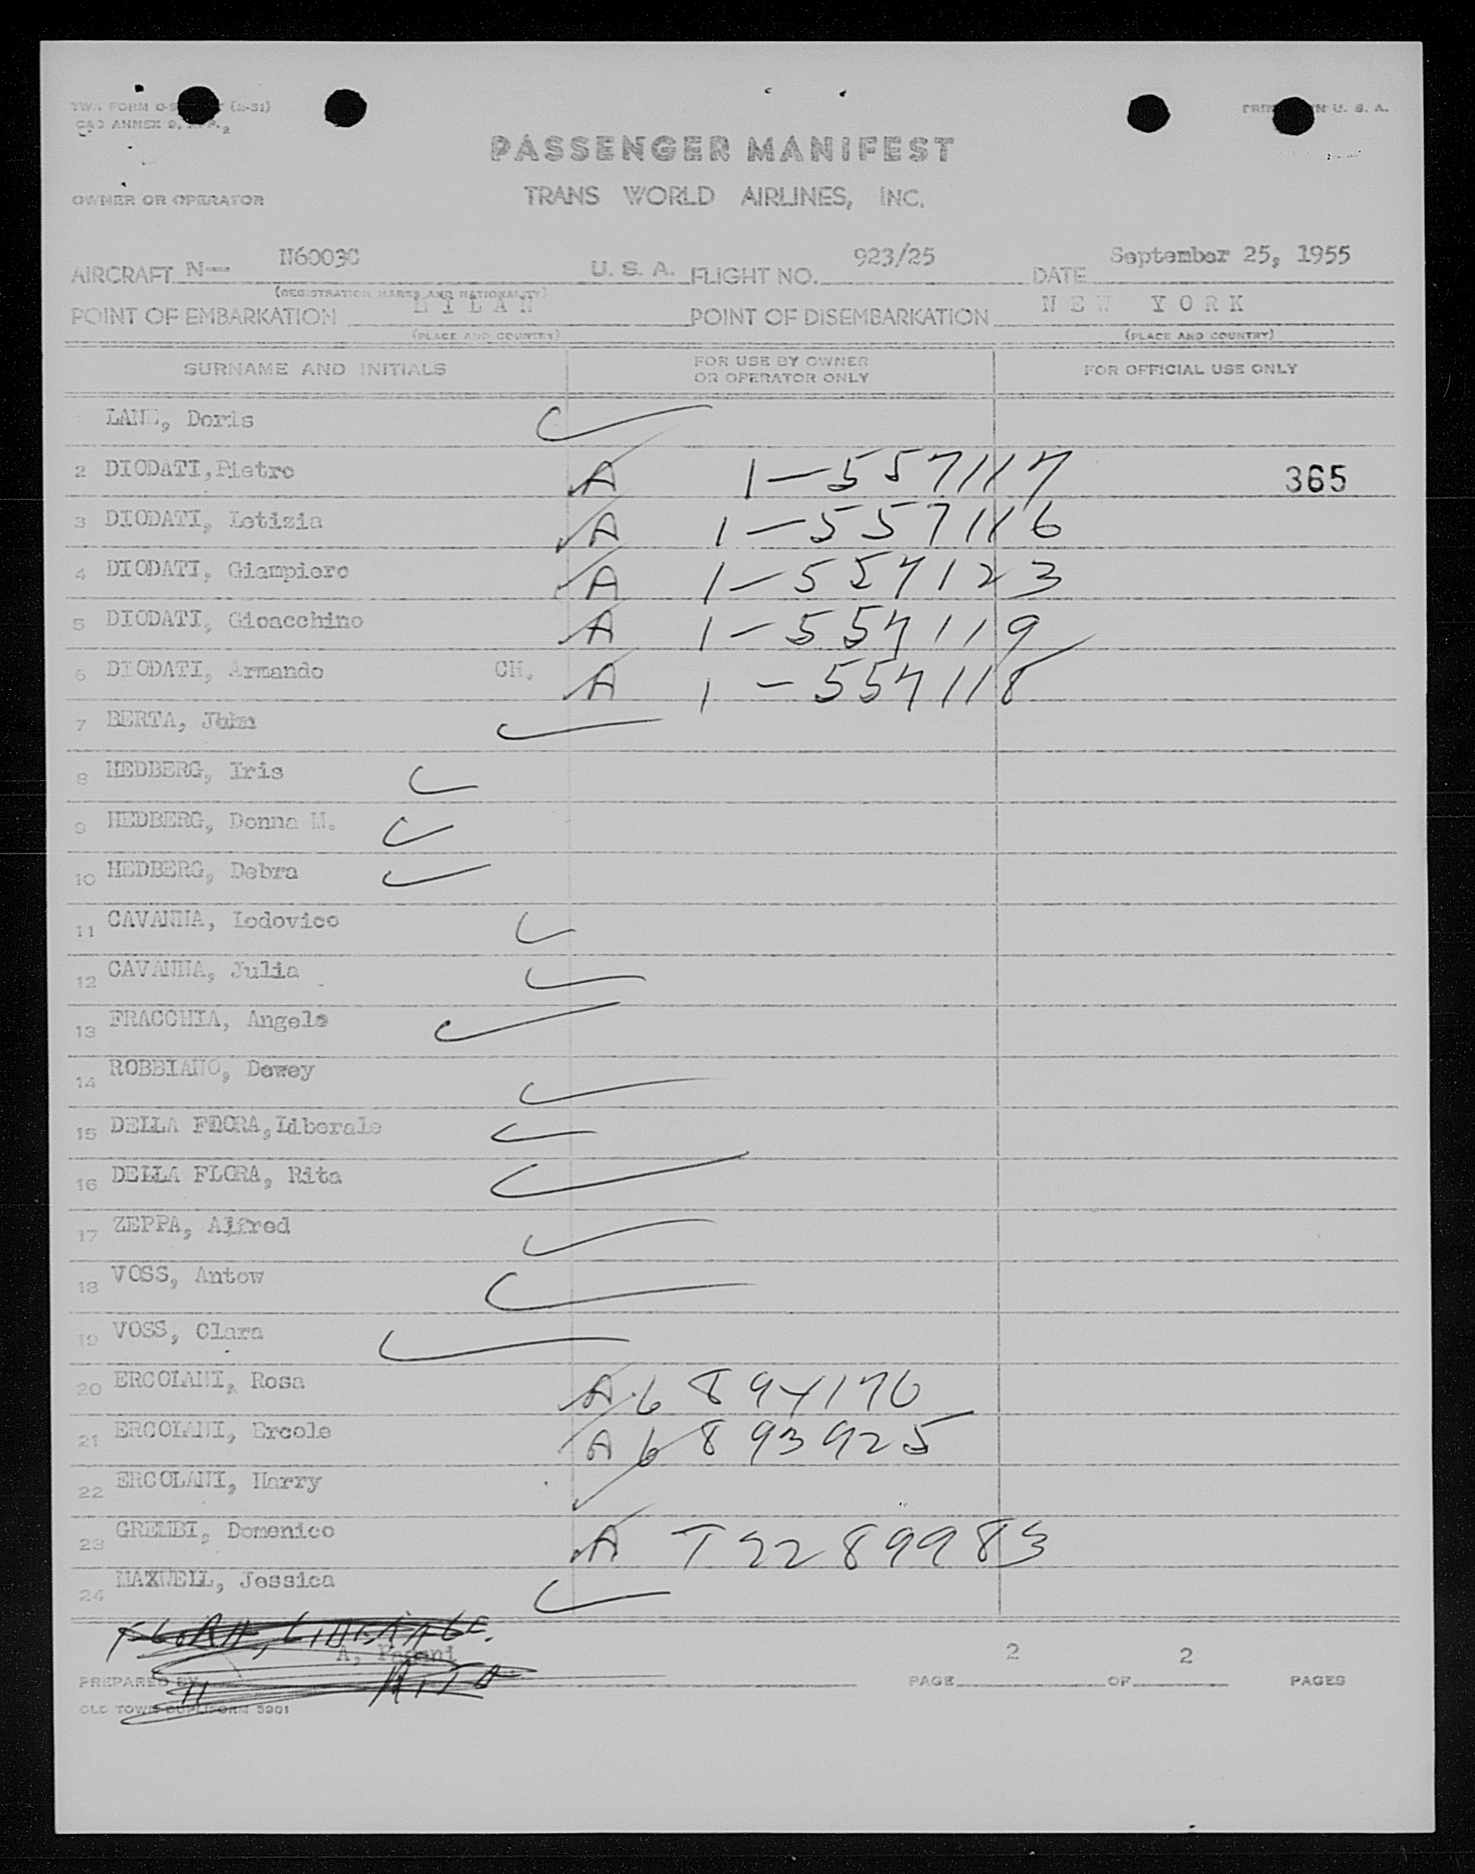 TWA FORM (2-51)
CAO ANNEX 9,
PRINTED IN U. S. A.
PASSENGER MANIFEST
OWNER OR OPERATOR
TRANS WORLD AIRLINES, INC.
AIRCRAFT N— N6003C U. S. A. FLIGHT NO. 923/25 DATE September 25, 1955
(REGISTRATION MARKS AND NATIONALITY)
POINT OF EMBARKATION MILAN POINT OF DISEMBARKATION NEW YORK
(PLACE AND COUNTRY) (PLACE AND COUNTRY)
SURNAME AND INITIALS FOR USE BY OWNER OR OPERATOR ONLY FOR OFFICIAL USE ONLY
Doris
2 DIODATI, Pietro A 1-557117 365
3 DIODATI, Letizia A 1-557116
4 DIODATI, Giampiero A 1-557123
5 DIODATI, Gioacchino A 1-557119
6 DIODATI, Armando CH. A 1-557118
7 BERTA, John
8 HEDBERG, Iris
9 HEDBERG, Donna M.
10 HEDBERG, Debra
11 CAVANNA, Lodovico
12 CAVANNA, Julia
13 FRACCHIA, Angelo
14 ROBBIANO, Dewey
15 DELLA FLORA, Liberale
16 DELLA FLORA, Rita
17 ZEPPA, Alfred
18 VOSS, Antow
19 VOSS, Clara
20 ERCOLANI, Rosa A 6 894170
21 ERCOLANI, Ercole A 6 893925
22 ERCOLANI, Harry
23 GREMBI, Domenico A T2289983
24 MAXWELL, Jessica
A. Pagani
PREPARED BY PAGE 2 OF 2 PAGES
OLD TOWN DUPLIFORM 5901